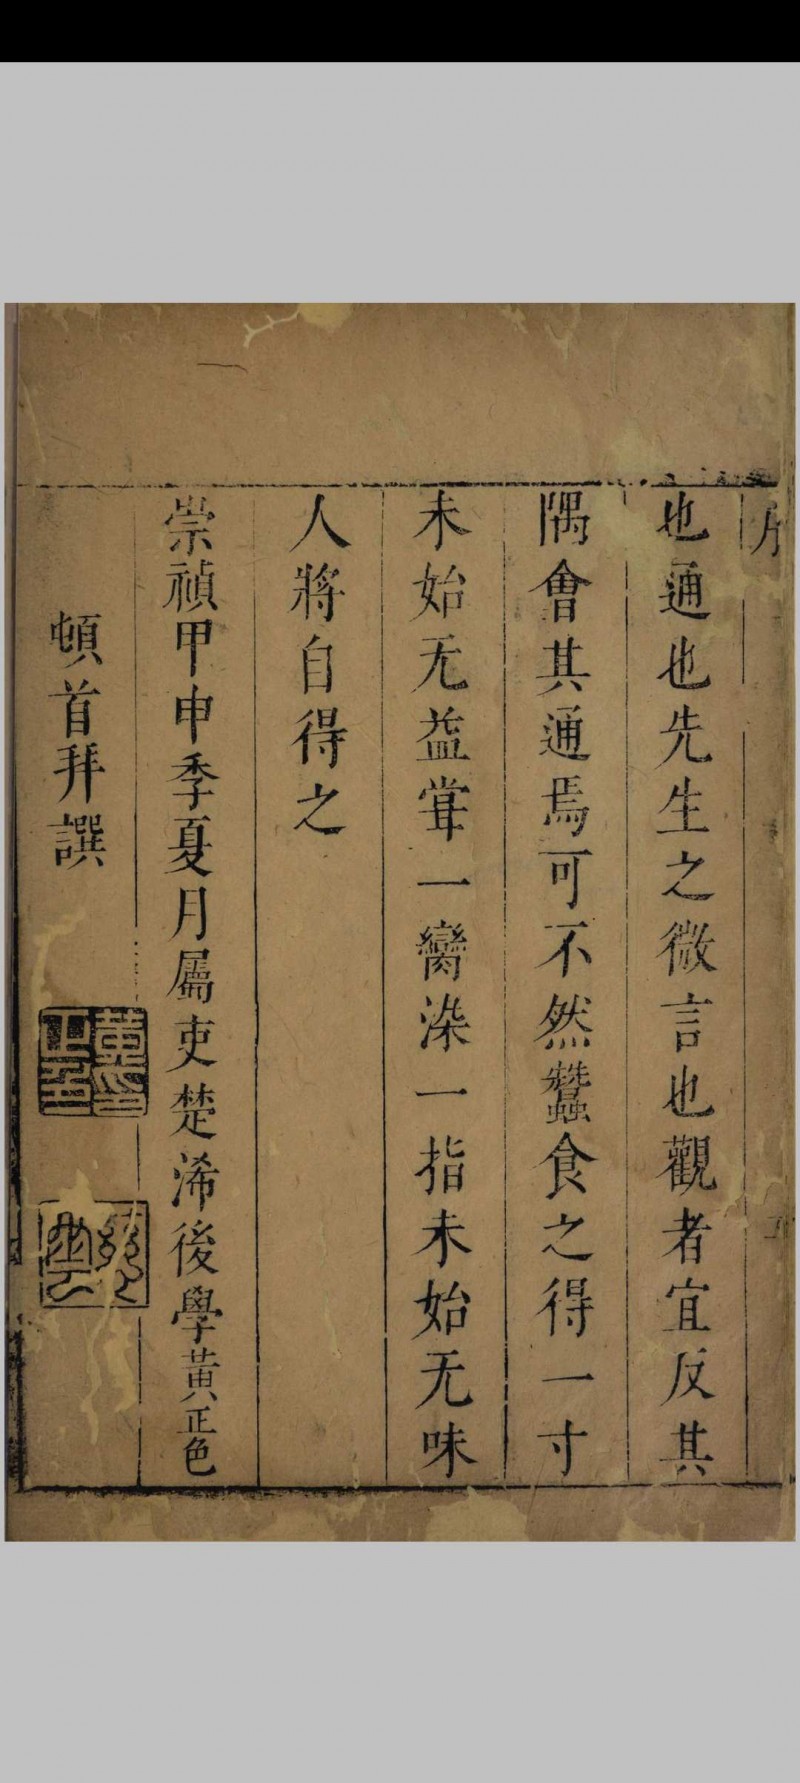 序
也通也先生之微言也觀者宜反其
隅會其通焉可不然蠶食之得一寸
未始无益甞一臠染一指未始无味
人將自得之
崇禎甲申季夏月屬吏楚浠後學黃正色
頓首拜譔
黃印正色